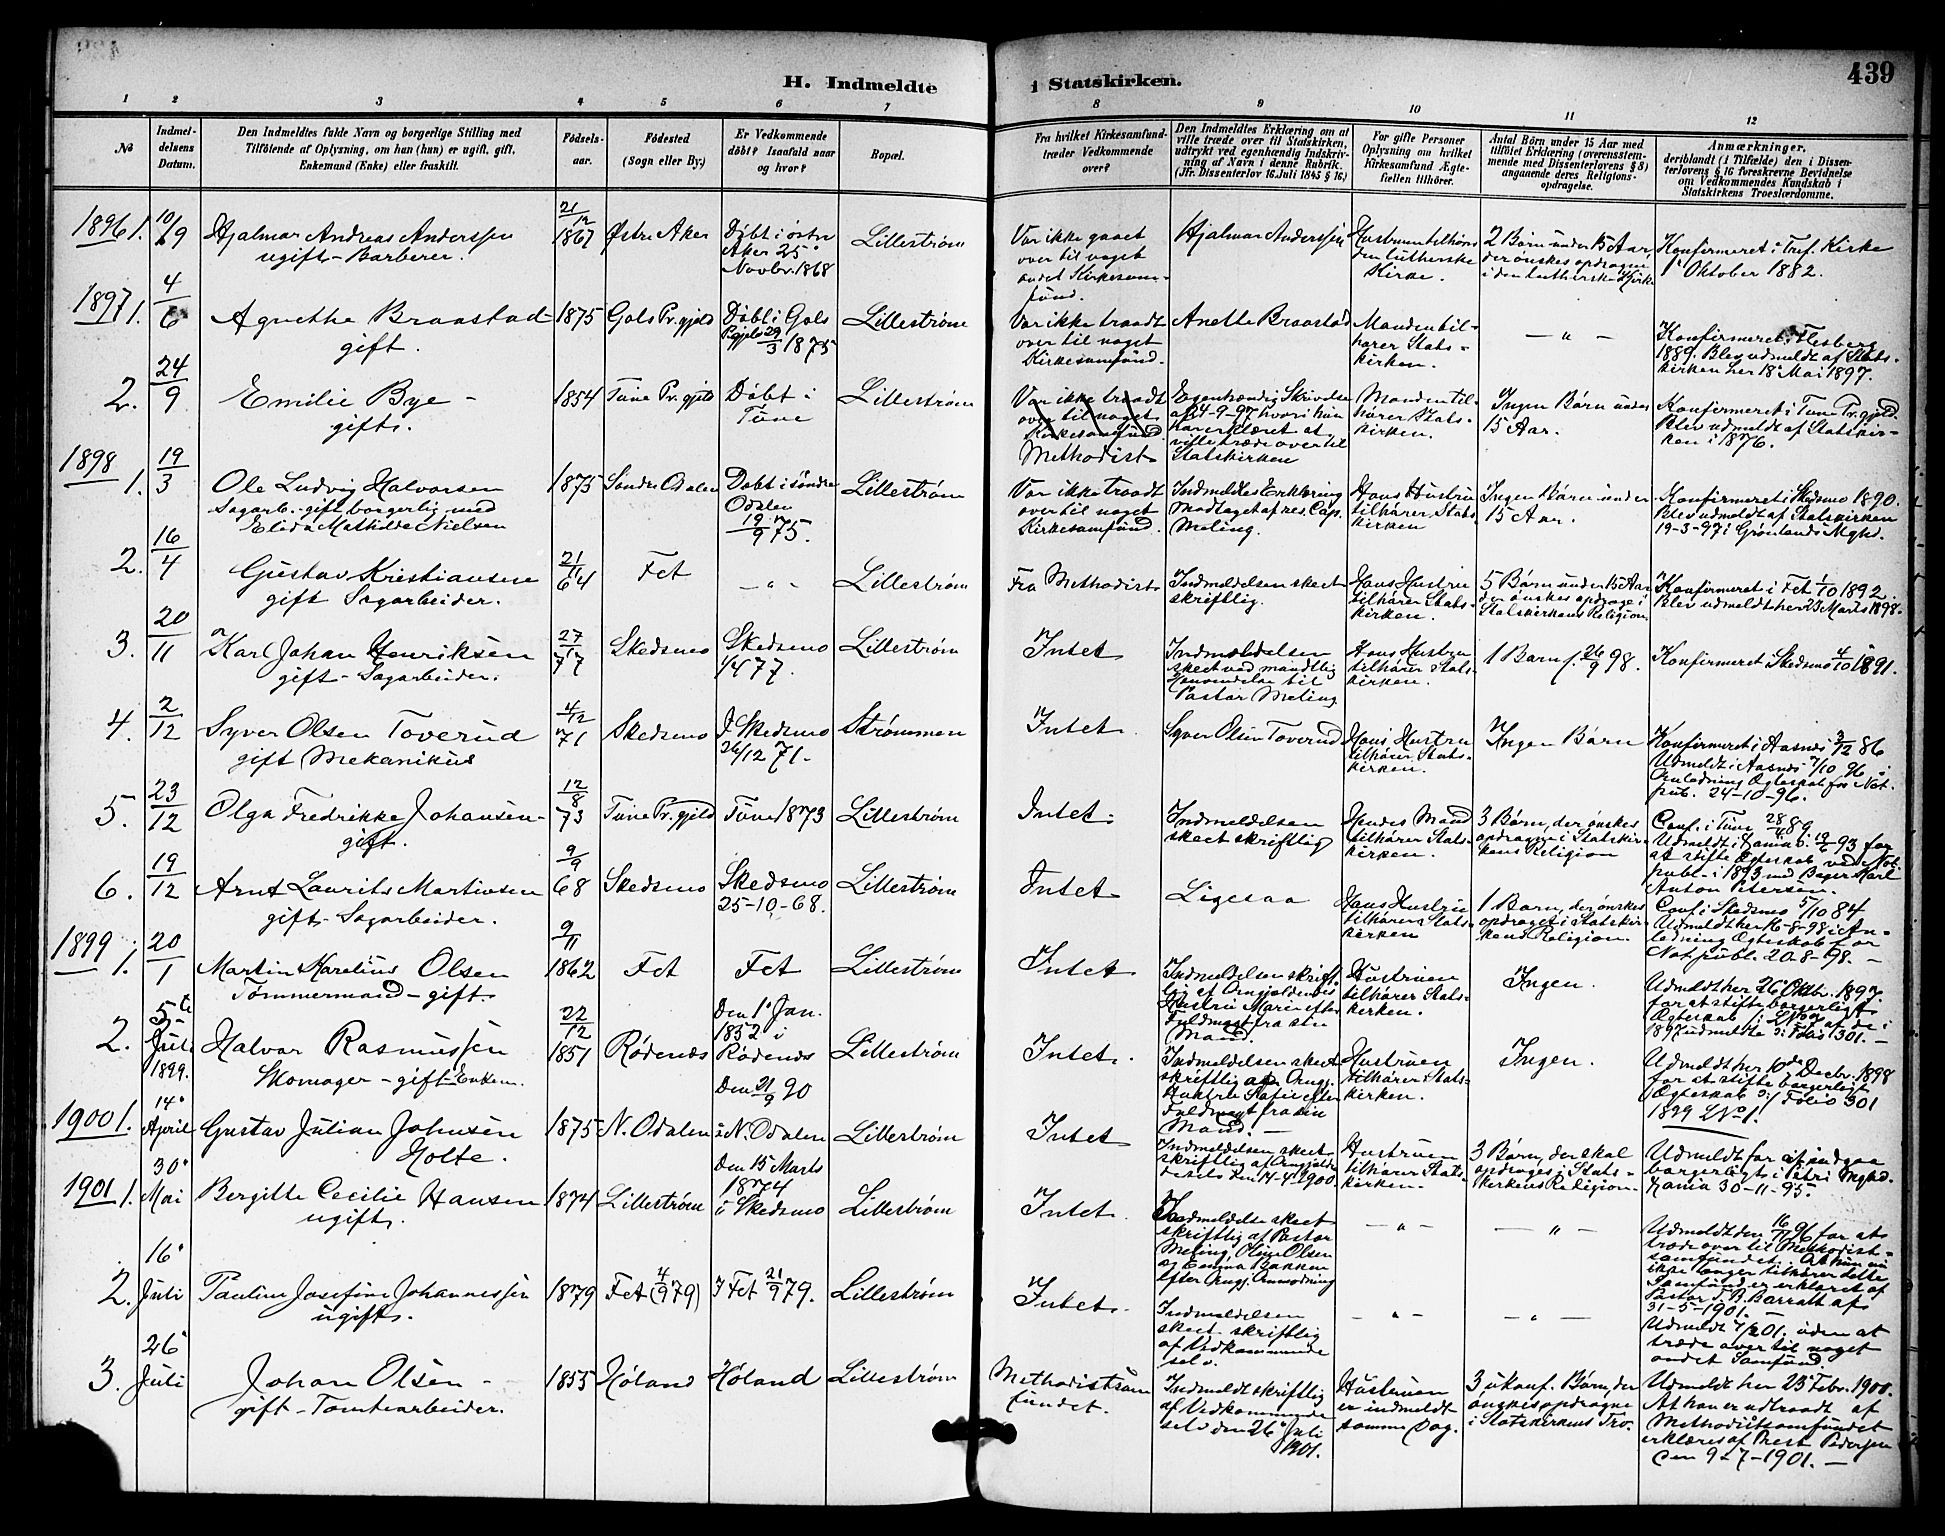 H. Indmeldte i Statskirken.
439
1 2 3 4 5 6 7 8 9 10 11 12
No
Indmel-
delsens
Datum.
Den Indmeldtes fulde Navn og borgerlige Stilling med
Tilföiende af Oplysning, om han (hun) er ugift, gift,
Enkemand (Enke) eller fraskilt.
Födsels-
aar.
Födested
(Sogn eller By.)
Er Vedkommende
döbt? Isaafald naar
og hvor?
Bopæl.
Fra hvilket Kirkesamfund
træder Vedkommende
over?
Den Indmeldtes Erklæring om at
ville træde over til Statskirken,
udtrykt ved egenhændig Indskriv-
ning af Navn i denne Rubrik.
(Jfr. Dissenterlov 16 Juli 1845 § 16.)
For gifte Personer
Oplysning om hvilket
Kirkesamfund Ægte-
fællen tilhörer.
Antal Börn under 15 Aar med
tilföiet Erklæring (overensstem-
mende med Dissenterlovens § 8)
angaaende deres Religions-
opdragelse.
Anmærkninger,
deriblandt (i Tilfælde) den i Dissen-
terlovens § 16 foreskrevne Bevidnelse
om Vedkommendes Kundskab i
Statskirkens Troeslærdomme.
1896 1. 10/9
Hjalmar Andreas Anderssen
ugift - Barberer.
21/12
1867
Østre Aker
Døbt i østre
Aker 25
Novbr. 1868
Lillestrøm
Var ikke gaaet
over til noget
andet Kirkesam-
fund.
Hjalmar Anderssen
Hustruen tilhører
den lutherske
Kirke.
2 Børn under 15 Aar,
der ønskes opdragne
i den lutherske Kirke
Konfirmeret i Tref. Kirke
1 Oktober 1882.
1897 1. 4/6
Agnethe Braastad
gift.
1875
Gols Pr.gjeld
Døbt i Gols
Prgjeld 29/3 1875
Lillestrøm
Var ikke traadt
over til noget
Kirkesamfund.
Anette Braastad
Manden til-
hører Stats-
kirken.
- " -
Konfirmeret i Flesberg
1889. Blev udmeldt af Stats-
kirken her 18 Mai 1897.
2. 24/9
Emilie Bye -
gift.
1854
Tune Pr.gjeld
Døbt i
Tune
Lillestrøm
Var ikke traadt
over til noget
Kirkesamfund.
Methodist
Egenhændig Skrivelse
af 24-9-97 hvori hun
har erklæret at
ville træde over til
Statskirken
Manden til-
hører Stats-
kirken.
Ingen Børn under
15 Aar.
Konfirmeret i Tune Pr.gjeld.
Blev udmeldt af Statskir-
ken i 1876.
1898
1. 19/3
Ole Ludvig Halvorsen
Sagarb. - gift borgerlig med
Elida Mathilde Nielsen
1875
Søndre Odalen
Døbt i søndre
Odalen
19/9 75.
Lillestrøm
Var ikke traadt
over til noget
Kirkesamfund.
Indmeldtes Erklæring
modtaget af res. Cap.
Meling.
Hans Hustru
tilhører Stats-
kirken
Ingen Børn under
15 Aar.
Konfirmeret i Skedsmo 1890.
Blev udmeldt af Statskirken
19-3-97 i Grønlands Mghd.
2. 16/4
Gustav Kristiansen
gift Sagarbeider.
21/11
64
Fet
- " -
Lillestrøm
Fra Methodist
Indmeldelsen skeet
skriftlig.
Hans Hustru
tilhører Stats-
kirken.
5 Børn under 15 Aar
der ønskes opdragne i
Statskirkens Religion
Konfirmeret i Fet 1/10 1892.
Blev udmeldt her 23 Marts 1898.
3. 20/11
Karl Johan Henriksen
gift - Sagarbeider.
27/1
77
Skedsmo
Skedsmo
1/4 77.
Lillestrøm
Intet
Indmeldelsen
skeet ved mundtlig
Henvendelse til
Pastor Meling
Hans Hustru
tilhører Stats-
kirken.
1 Barn f. 26/9 98.
Konfirmeret Skedsmo 4/10 1891.
4. 2/12
Syver Olsen Toverud
gift Mekanikus
4/12
71
Skedsmo
I Skedsmo
26/12 71.
Strømmen
Intet.
Syver Olsen Toverud
Hans Hustru
tilhører Stats-
kirken.
Ingen Børn
Konfirmeret i Aasnes 3/12 86
Udmeldt i Aasnes 7/10 96 i
Anledning Ægteskab for Not.
pub. 24-10-96.
5. 23/12
Olga Fredrikke Johansen-
gift.
12/8
73
Tune Pr.gjeld
Tune 1873
Lillestrøm
Intet.
Indmeldelsen
skeet skriftlig
Hendes Mand
tilhører Stats-
kirken.
3 Børn, der ønskes
opdragne i Statskir-
kens Religion
Conf. i Tune 28/4 89.
Udmeldt i Xania 19/6 93 for
at stifte Ægteskab ved Not.
publ. i 1893 med Bager Karl
Anton Petersen.
6. 19/12
Arnt Laurits Martinsen
gift - Sagarbeider.
9/9
68
Skedsmo
Skedsmo
25-10-68.
Lillestrøm
Intet
Ligesaa
Hans Hustru
tilhører Stats-
kirken
1 Barn, der ønskes
opdraget i Statskir-
kens Religion.
Conf. i Skedsmo 5/10 84
Udmeldt her 16-8-98 i An-
ledning Ægteskab for
Not publ. 20-8-98. -
1899 1. 20/1
Martin Karelius Olsen
Tømmermand - gift
9/11
1862
Fet
Fet
Lillestrøm
Intet
Indmeldelsen skrift-
lig af Angjældendes
Hustru Marie efter
Fuldmagt fra sin
Mand.
Hustruen
tilhører Stats-
kirken.
Ingen.
Udmeldt her 26 Oktbr. 1897.
for at stifte borgerligt
Ægteskab af de i
1897 udmeldte Folio 301. -
2. 5te
Juli
1899.
Halvor Rasmussen
Skomager - gift - Enkem.
22/12
1851
Rødenæs
Den 1 Jan.
1852 i
Rødenæs
Lillestrøm
Intet.
Indmeldelsen skeet
skriftlig af Angj.
Hustru efter
Fuldmagt fra sin
Mand. -
Hustruen
tilhører Stats-
kirken.
Ingen.
Udmeldt her 10de Decbr. 1898
for at stifte borgerligt
Ægteskab Folio 301
1899 No 1.
1900 1. 14
April
Gustav Julian Johnsen
Holte.
1875
N. Odalen
Den 21/9 90
i N. Odalen
Lillestrøm
Intet
Indmeldelsen skeet
skriftlig af Angjælden-
de den 14-4-1900.
Hustruen
tilhører Stats-
kirken.
3 Børn, der skal
opdrages i Stats-
kirkens Religion.
Udmeldt for at indgaa
borgerligt i Petri Mghd.
Xania 30-11-95.
1901 1. 30
Mai
Bergitte Cecilie Hansen
ugift.
1874
Lillestrøm
Den 15 Marts
1874
i Skedsmo
Lillestrøm
Intet.
Indmeldelse skeet
skriftlig af Pastor
Meling, Oline Olsen
og Emma Bakken
efter Angj. Anmodning
- " -
- " -
Udmeldt den 16/11 96 for at
træde over til Methodist-
samfundet. At hun nu
ikke længer tilhører dette
Samfund er erklæret af
Pastor T. B. Barratt af
31-5-1901.
2. 16
Juli
Pauline Josefine Johannessen
ugift.
1879
Fet (4/9 79)
I Fet 21/9 79.
Lillestrøm
Intet.
Indmeldelsen
skeet skriftlig
af Vedkommende
selv.
- " -
- " -
Udmeldt 4/2 01. uden at
træde over til noget
andet Samfund.
3. 26
Juli
Johan Olsen -
gift - Tomtearbeider.
1855
Høland
Høland
Lillestrøm
Methodistsam
fundet.
Indmeldt skriftlig
af Vedkommende
selv den 26 Juli
1901.
Hustruen
er indmeldt
samme Dag.
3 ukonf. Børn, der
ønskes opdragne
i Statskirkens Tro.
Udmeldt her 23 Febr. 1900.
At han er udtraadt af
Methodistsamfundet
erklæres af Prest Pedersen
den 9-7-1901. -